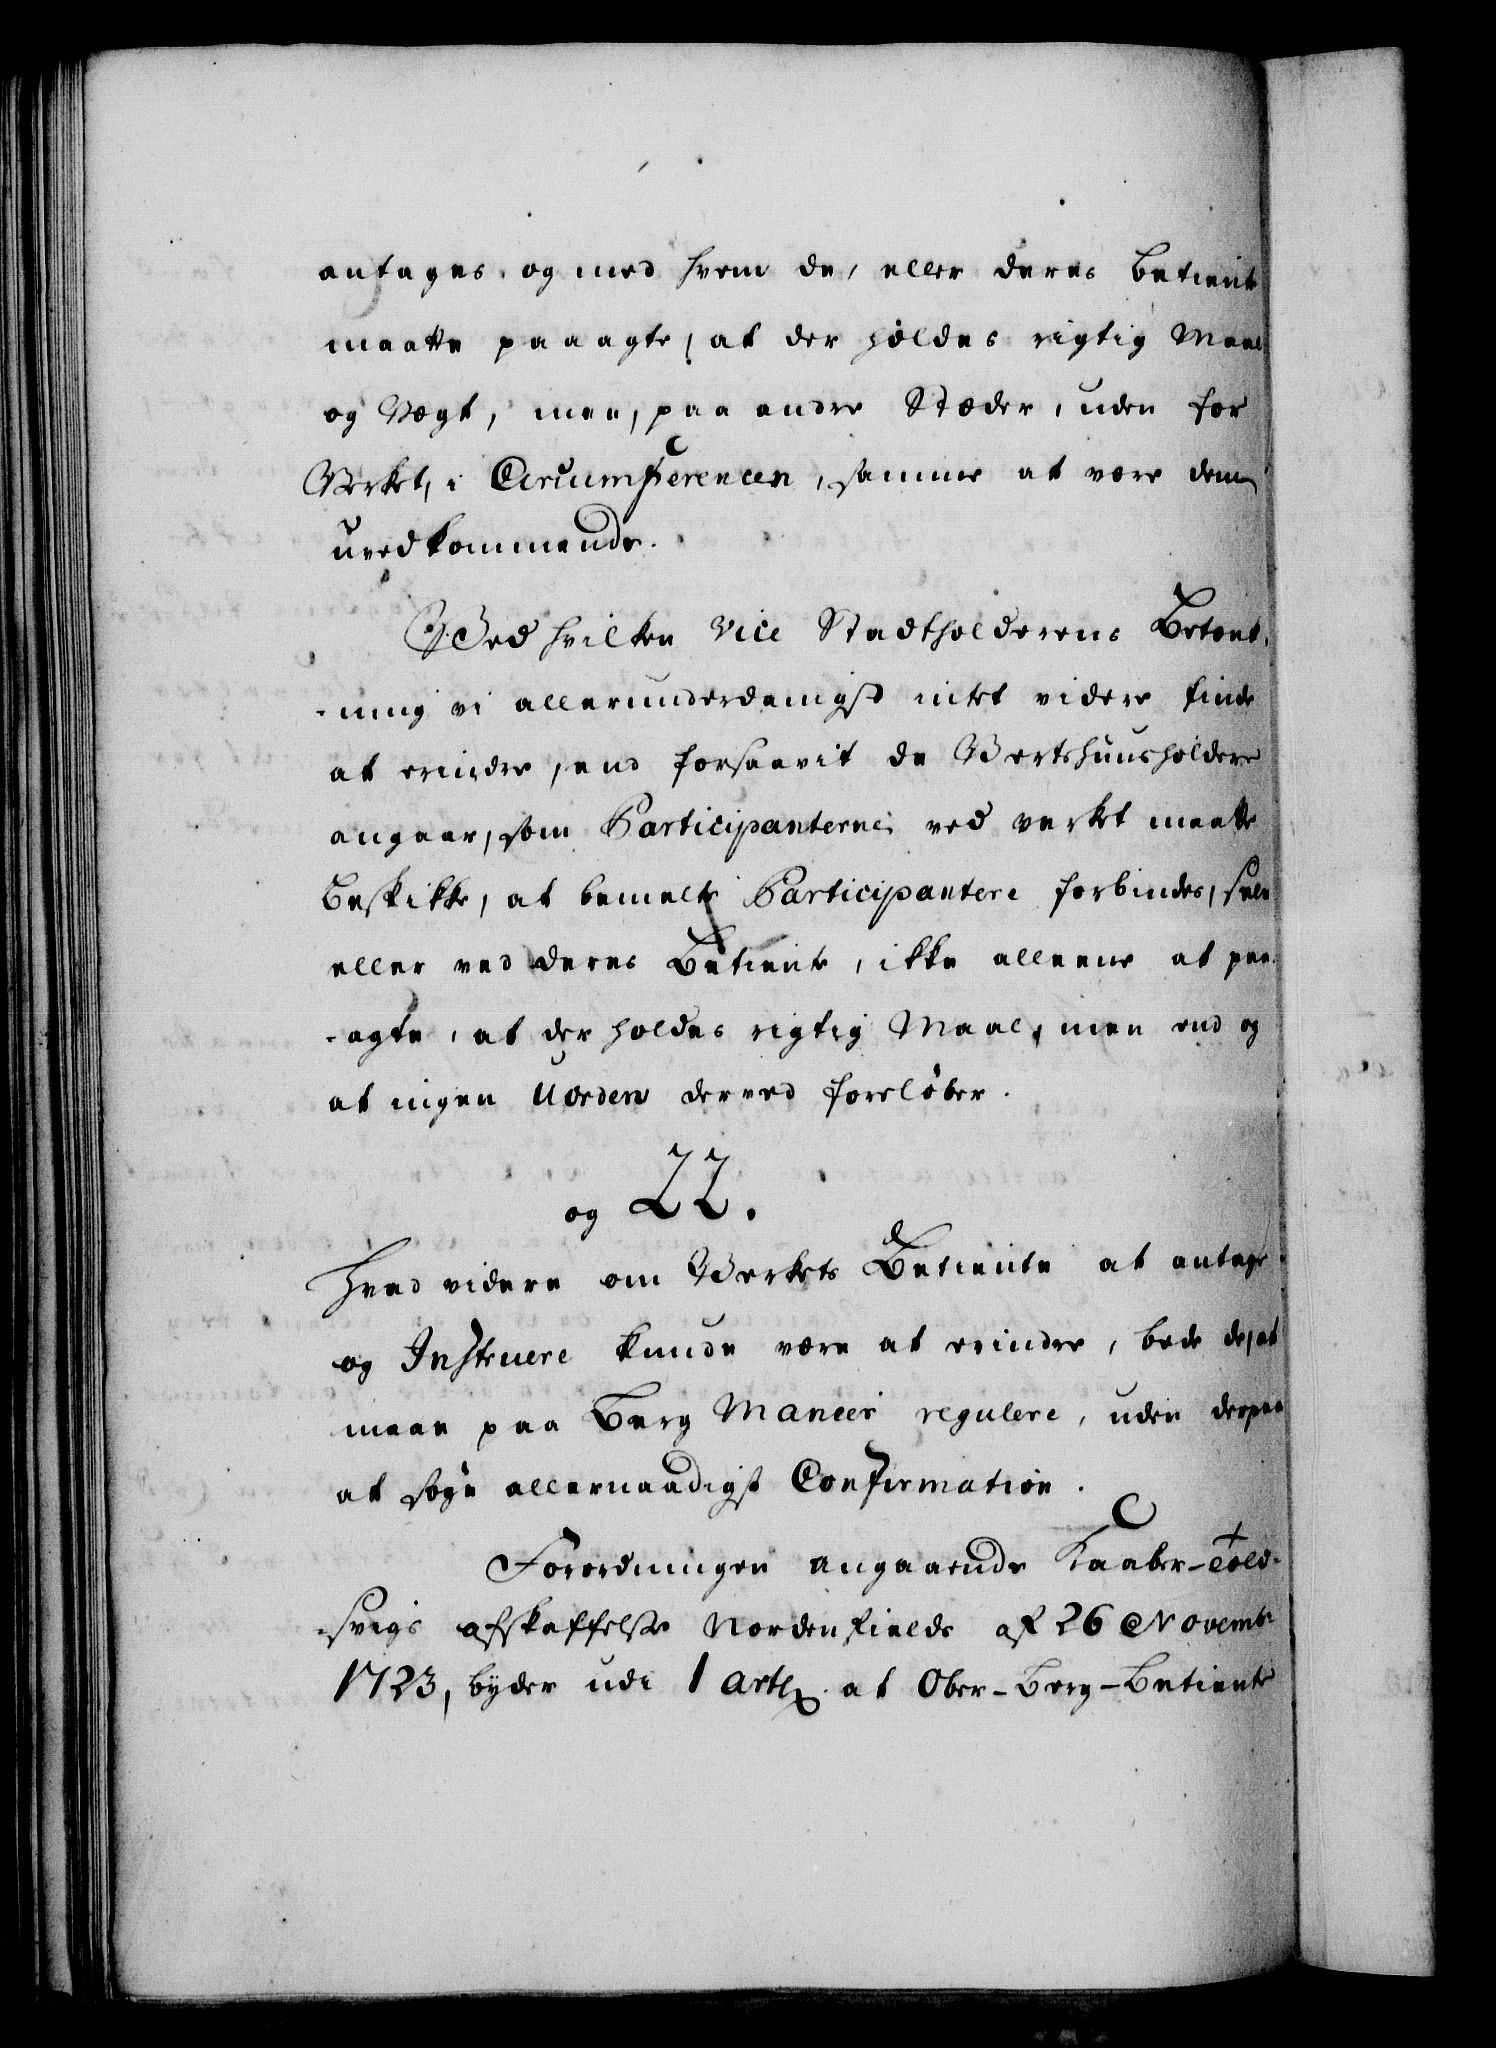 antages, og med hvem de, eller deres Betiente
maatte paaagte, at der holdes rigtig Maal
og Vægt, men, paa andre Stæder, uden for
Verket, i Circumferencen, samme at være dem
uvedkommende.
Ved hvilken Vice Stadtholderens Betænk-
-ning vi allerunderdanigst intet videre finde
at erindre, end forsaavit de Vertshuusholdere
angaar, som Participanterne ved verket maatte
Beskikke, at bemelte Participantere forbindes, selv
eller ved deres Betiente, ikke alleene at paa-
-agte, at der holdes rigtig Maal, men end og
at ingen Uorden derved foreløber.
og 22.
Hvad videre om Verkets Betiente at antage
og Instruere kunde være at erindre, bede de, at
maae paa Berg Maneer regulere, uden derpaa
at søge allernaadigst Confirmation.
Forordningen angaaende Kaaber-Told-
-svigs afskaffelse Nordenfields af 26 Novembr
1723, byder udi 1 Artl at Ober-Berg-Betiente